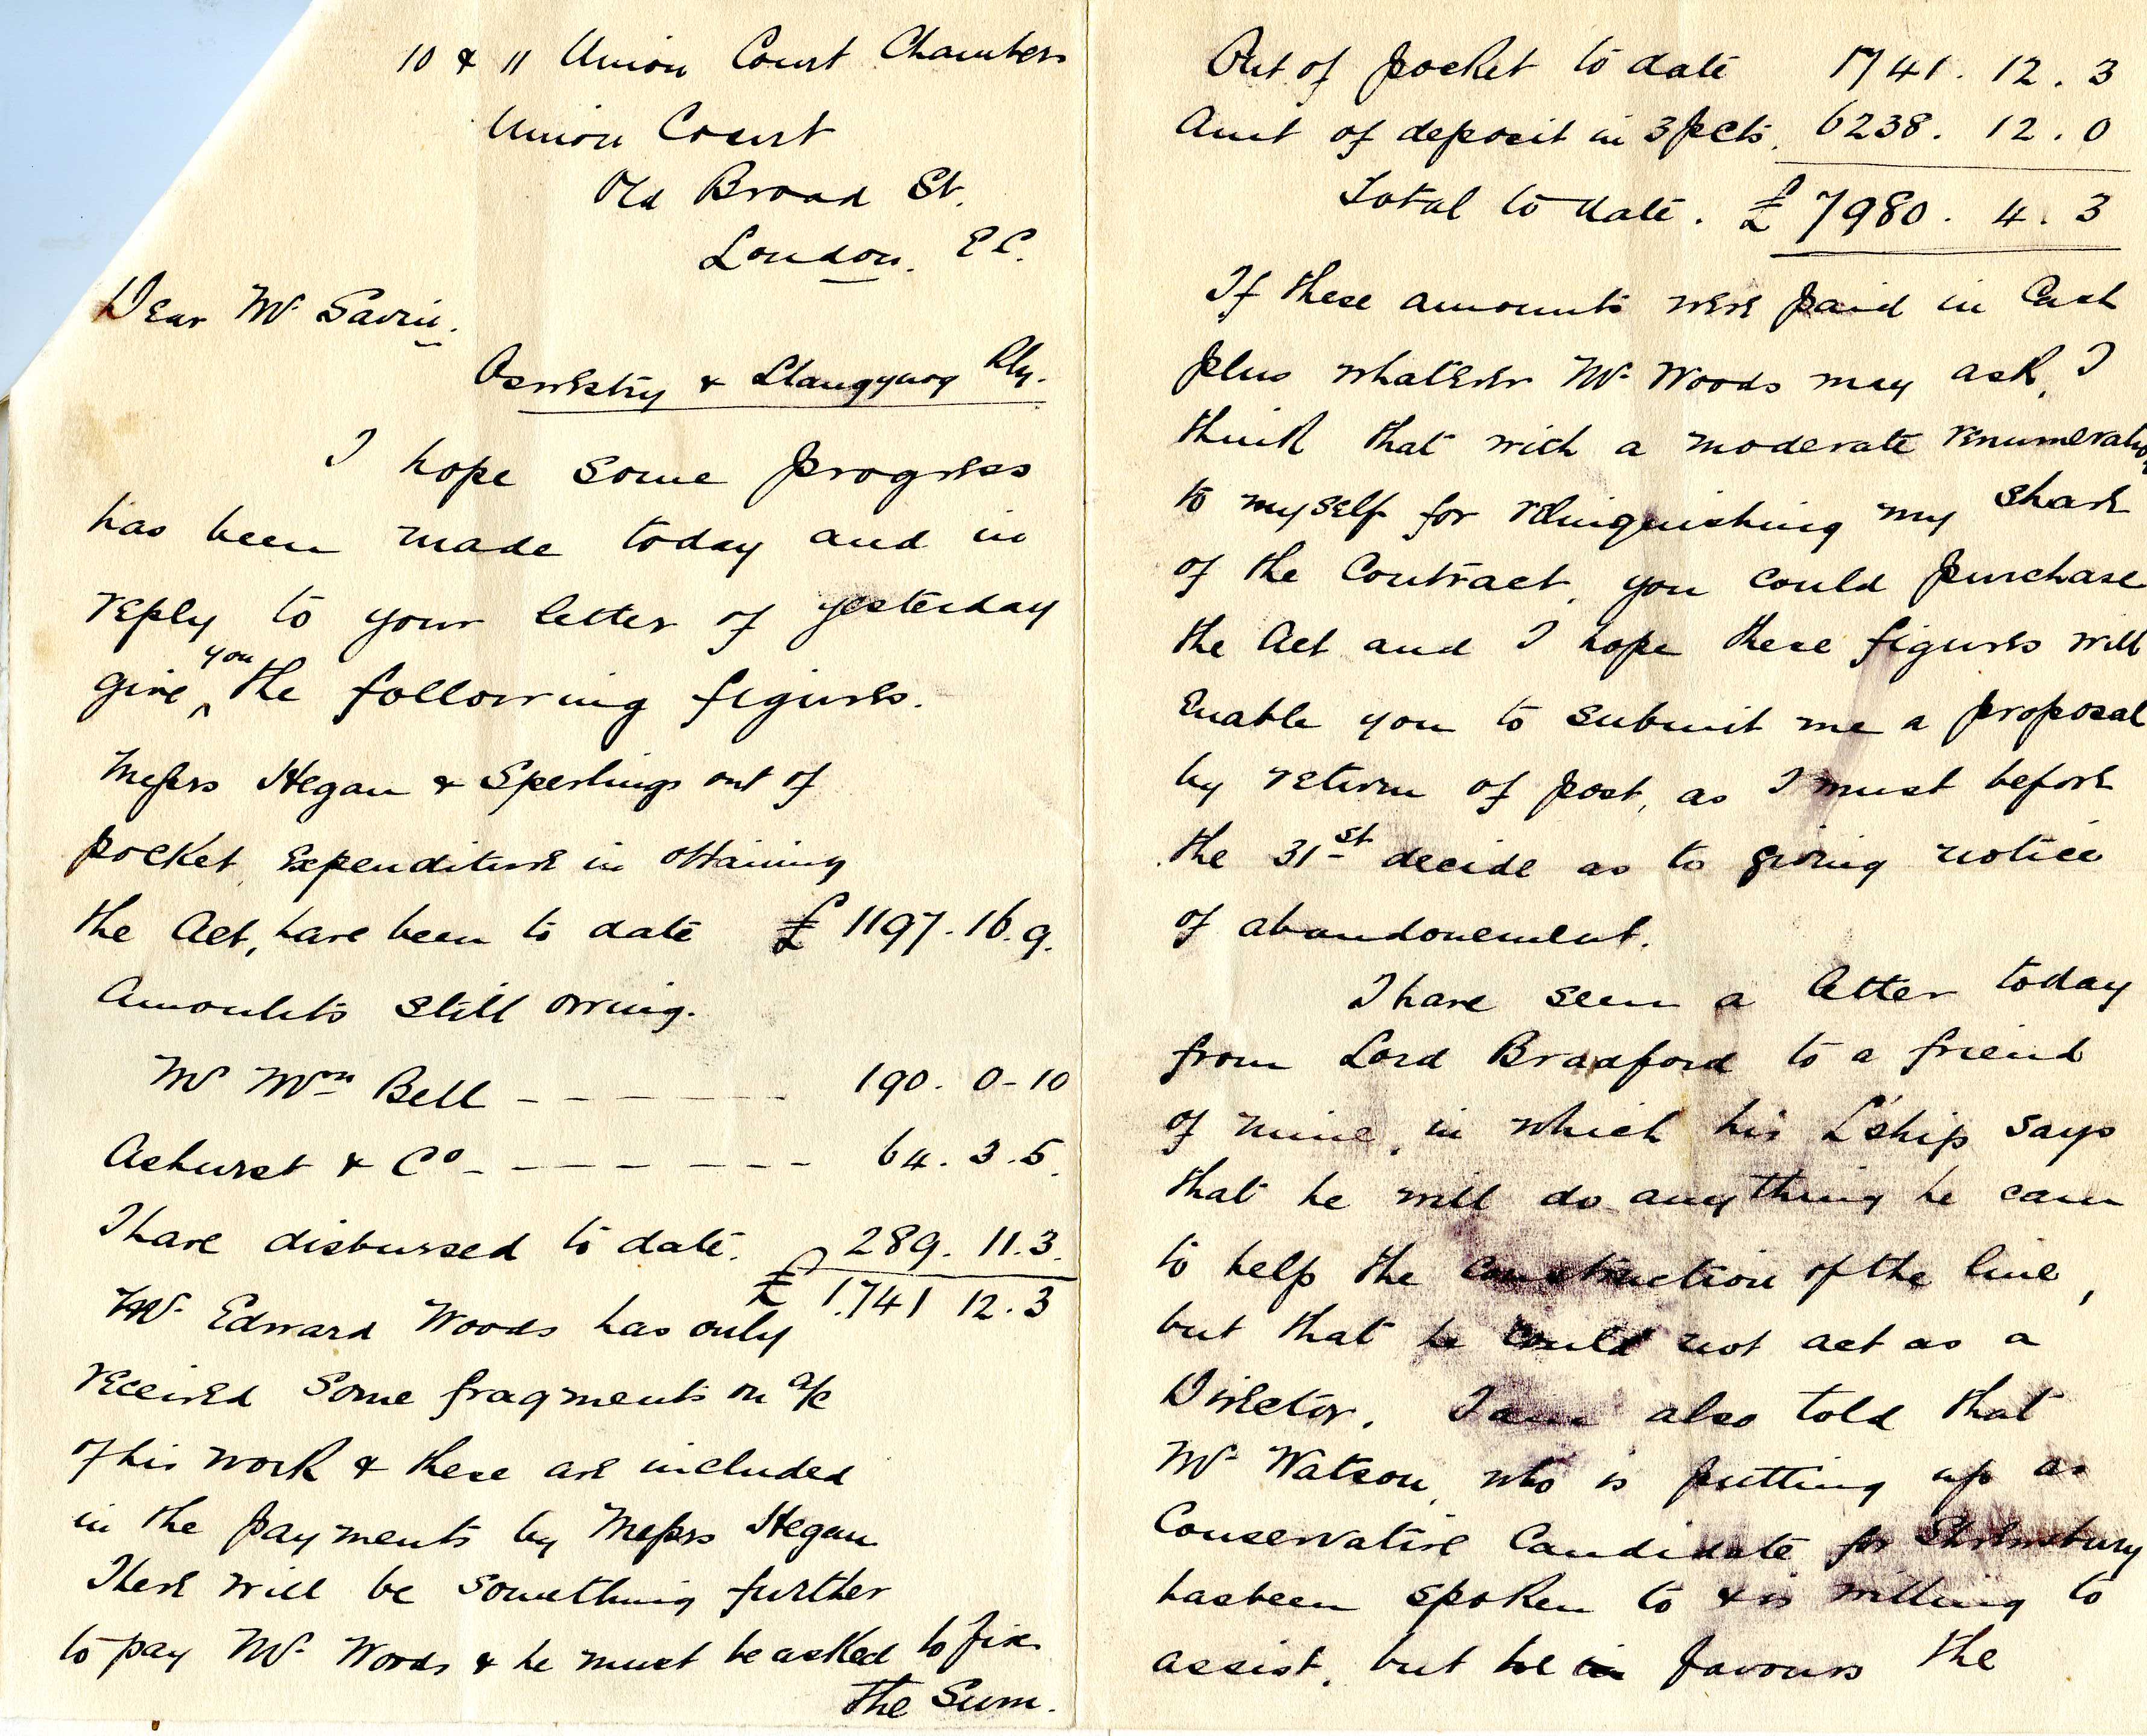 10 & 11 Union Court Chambers
Union Court
Old Broad St.
London. E.C.
Dear Mr Savin.
Oswestry & Llangynog Rly.
I hope some progress
has been made today and in
reply to your letter of yesterday
give you the following figures.
Messrs Hegan & Sperlings out of
pocket expenditure in obtaining
the Act, have been to date £1197.16.9.
Amounts still owing.
Mr Wm Bell - - - - - - 190. 0-10
Ashurst & Co - - - - - - - 64.3.5.
I have disbursed to date. 289. 11.3.
£ 1741 12.3
Mr Edward Woods has only
received some fragments on a/c
of his work & these are included
in the payments by Messrs Hegan
There will be something further
to pay Mr Woods & he must be asked to fix
the Sum.
Out of pocket to date 1741. 12. 3
Amt of deposit in 3 pcts. 6238. 12. 0
Total to date. £7980. 4. 3
If these amounts were paid in Cash
plus whatever Mr Woods may ask, I
think that with a moderate renumeration
to myself for relinquishing my share
of the Contract, you could purchase
the Act and I hope these figures will
enable you to submit me a proposal
by return of post, as I must before
the 31st decide as to giving notice
of abandonement.
I have seen a letter today
from Lord Bradford to a friend
of mine, in which his L'ship says
that he will do anything he can
to help the construction of the line,
but that he could not act as a
Director. I am also told that
Mr Watson, who is putting up as
Conservative Candidate for Shrewsbury
has been spoken to & is willing to
assist, but he favours the